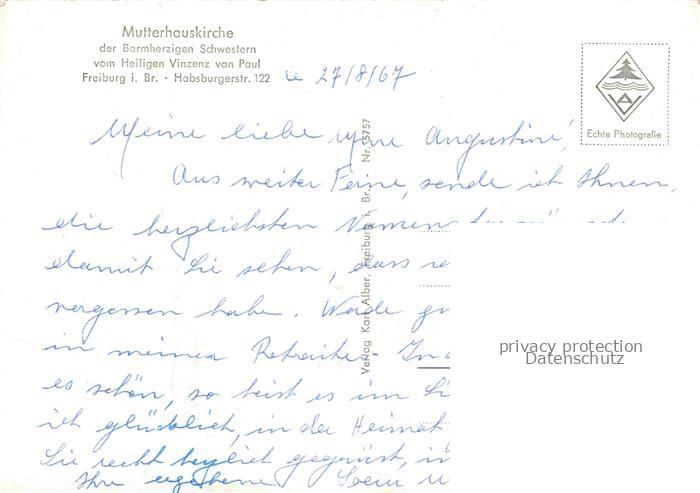 Mutterhauskirche
der Barmherzigen Schwestern
vom Heiligen Vinzenz von Paul
Freiburg i. Br. · Habsburgerstr. 122
le 27/8/67
Echte Photografie
Meine liebe Augustine,
Aus weiter Ferne, sende ich Ihnen,
die herzlichsten Namen
damit Sie sehen, dass
vergessen habe. Werde
in meinen Retraiten.
es schön, so heist es im
ich glücklich, in der Heimat
Sie recht herzlich gegrüst,
Ihre ergebene Soeur
Verlag Karl Alber, Freiburg i. Br. · Nr. 5757
privacy protection
Datenschutz